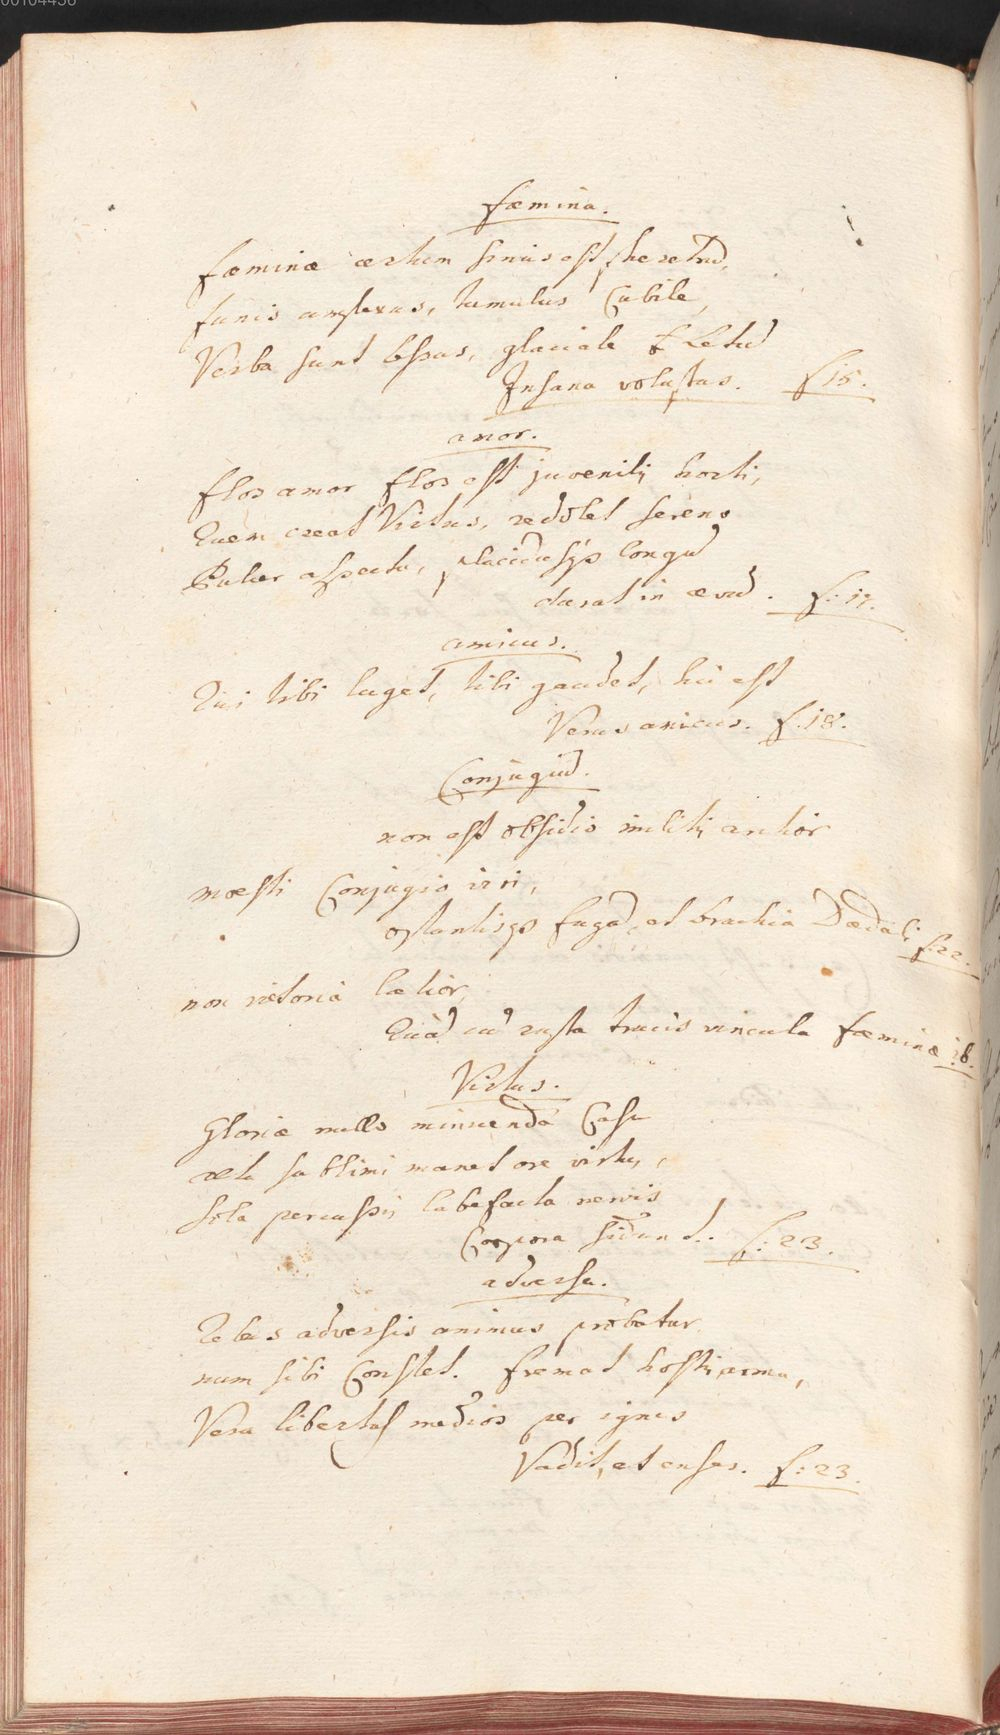 00104436
fœmina.
fœminæ æstum sinus est, pheretrũ,
funis amplexus, tumulus Cubile,
Verba sunt bessus, glaciale Fletũ
Insana voluptas. f 15.
amor.
flos amor flos est juvenilis horti,
Quem creat Virtus, redolet sereno
Pulcer aspectu, placidusq longũ
durat in ævũ. f: 17.
amicus.
Qui tibi luget, tibi gaudet, hic est
Verus amicus. f. 18.
Conjugiũ.
non est obsidio militis anctior
mœsti Conjugio viri,
optantisq fugã, et brachia Dædali f: 22.
non victoria lætior,
Quã cũ rupta trucis vincula fœminæ ib.
Virtus.
Gloriæ nullo minuenda Casu
læta sublimi manet ore virtus,
sola percussis labefacta nervis
Corpora sidunt. f: 23.
adversa.
Rebus adversis animus probatur
num sibi Constet. fremat hostis arma,
Vera libertas medios per ignes
Vadit, et enses. f: 23.